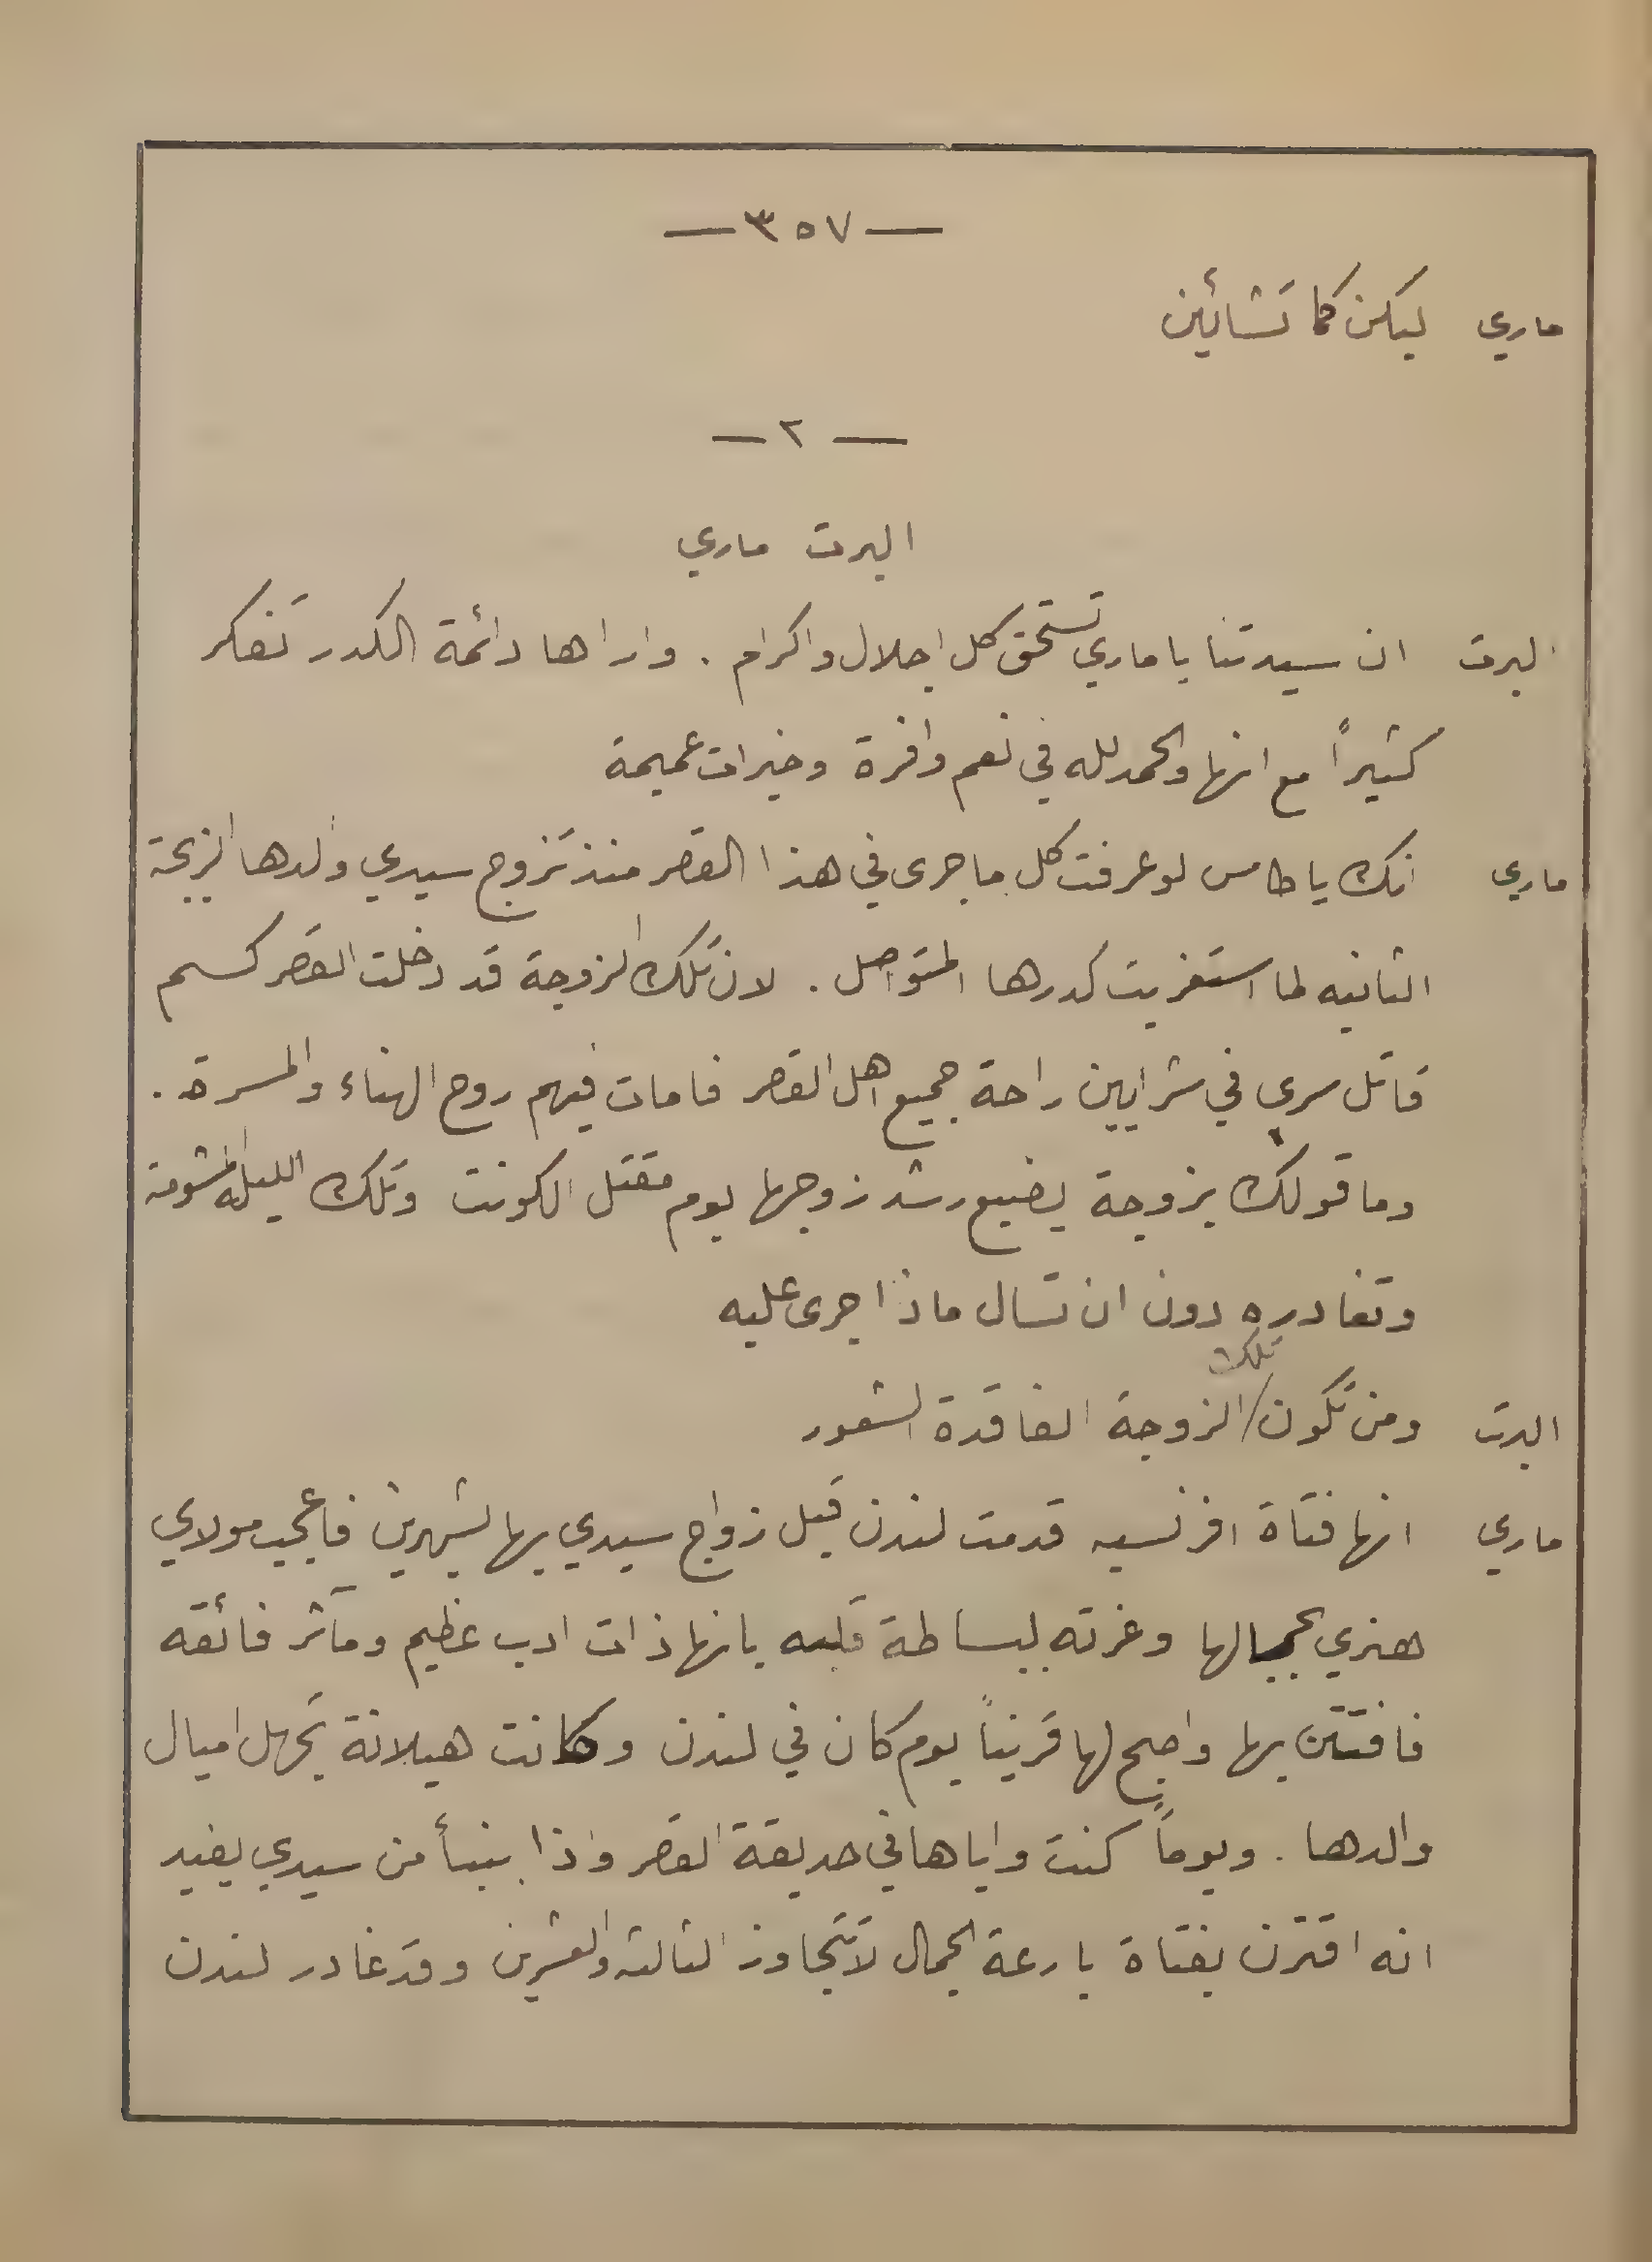 — ٣٥٧ —
ماري ليكن كما تشائين
— ٢ —
البرت ماري
البرت ان سيدتنا يا ماري تستحق كل اجلال واكرام . واراها دائمة الكدر تفكر
كثيراً مع انها والحمد لله في نعم وافرة وخيرات عميمة
ماري انك يا طامس لو عرفت كل ما جرى في هذا القصر منذ تزوج سيدي والدها الزيجة
الثانيه لما استغربت كدرها المتواصل . لان تلك الزوجة قد دخلت القصر كسم
قاتل سرى في شرايين راحة جميع اهل القصر فامات فيهم روح الهناء والمسرة .
وما قولك بزوجة يضيع رشد زوجها يوم مقتل الكونت وتلك الليلة المشومة
وتغادره دون ان تسال ماذا جرى عليه
البرت ومن تكون / تلك الزوجة الفاقدة الشعور
ماري انها فتاة افرنسيه قدمت لندن قبل زواج سيدي بها بشهرين فاعجب مولاي
هنري بجمالها وغرته ببساطة قلبه بانها ذات ادب عظيم ومآثر فائقه
فافتتن بها واصبح لها قريناً يوم كان في لندن وكانت هيلانة تجهل اميال
والدها . ويوماً كنت واياها في حديقة القصر واذا بنبأ من سيدي يفيد
انه اقترن بفتاة بارعة الجمال لا تتجاوز الثالثه والعشرين وقد غادر لندن